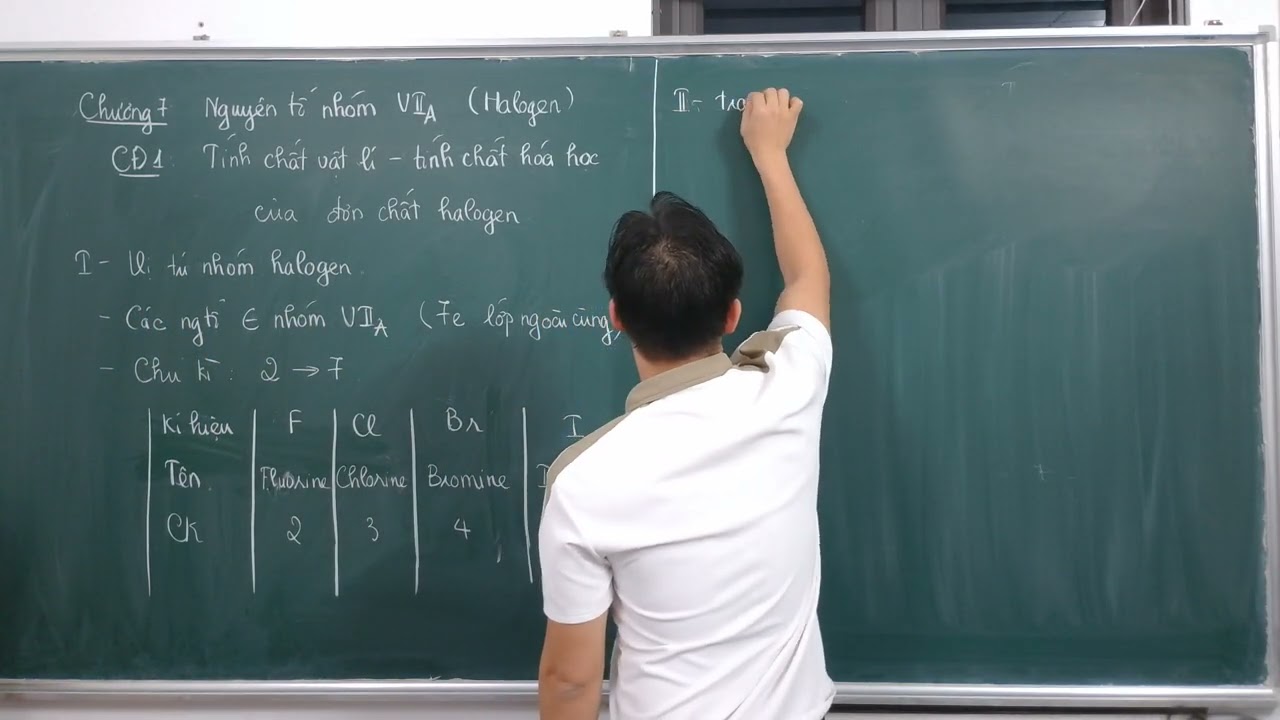 Chương 7 Nguyên tố nhóm VIIA (Halogen)
CĐ1: Tính chất vật lí - tính chất hóa học
của đơn chất halogen
I- Vị trí nhóm halogen.
- Các ngtố ∈ nhóm VIIA (7e lớp ngoài cùng)
- Chu kì: 2 → 7
Kí hiệu F Cl Br I
Tên Fluorine Chlorine Bromine
CK 2 3 4
II-